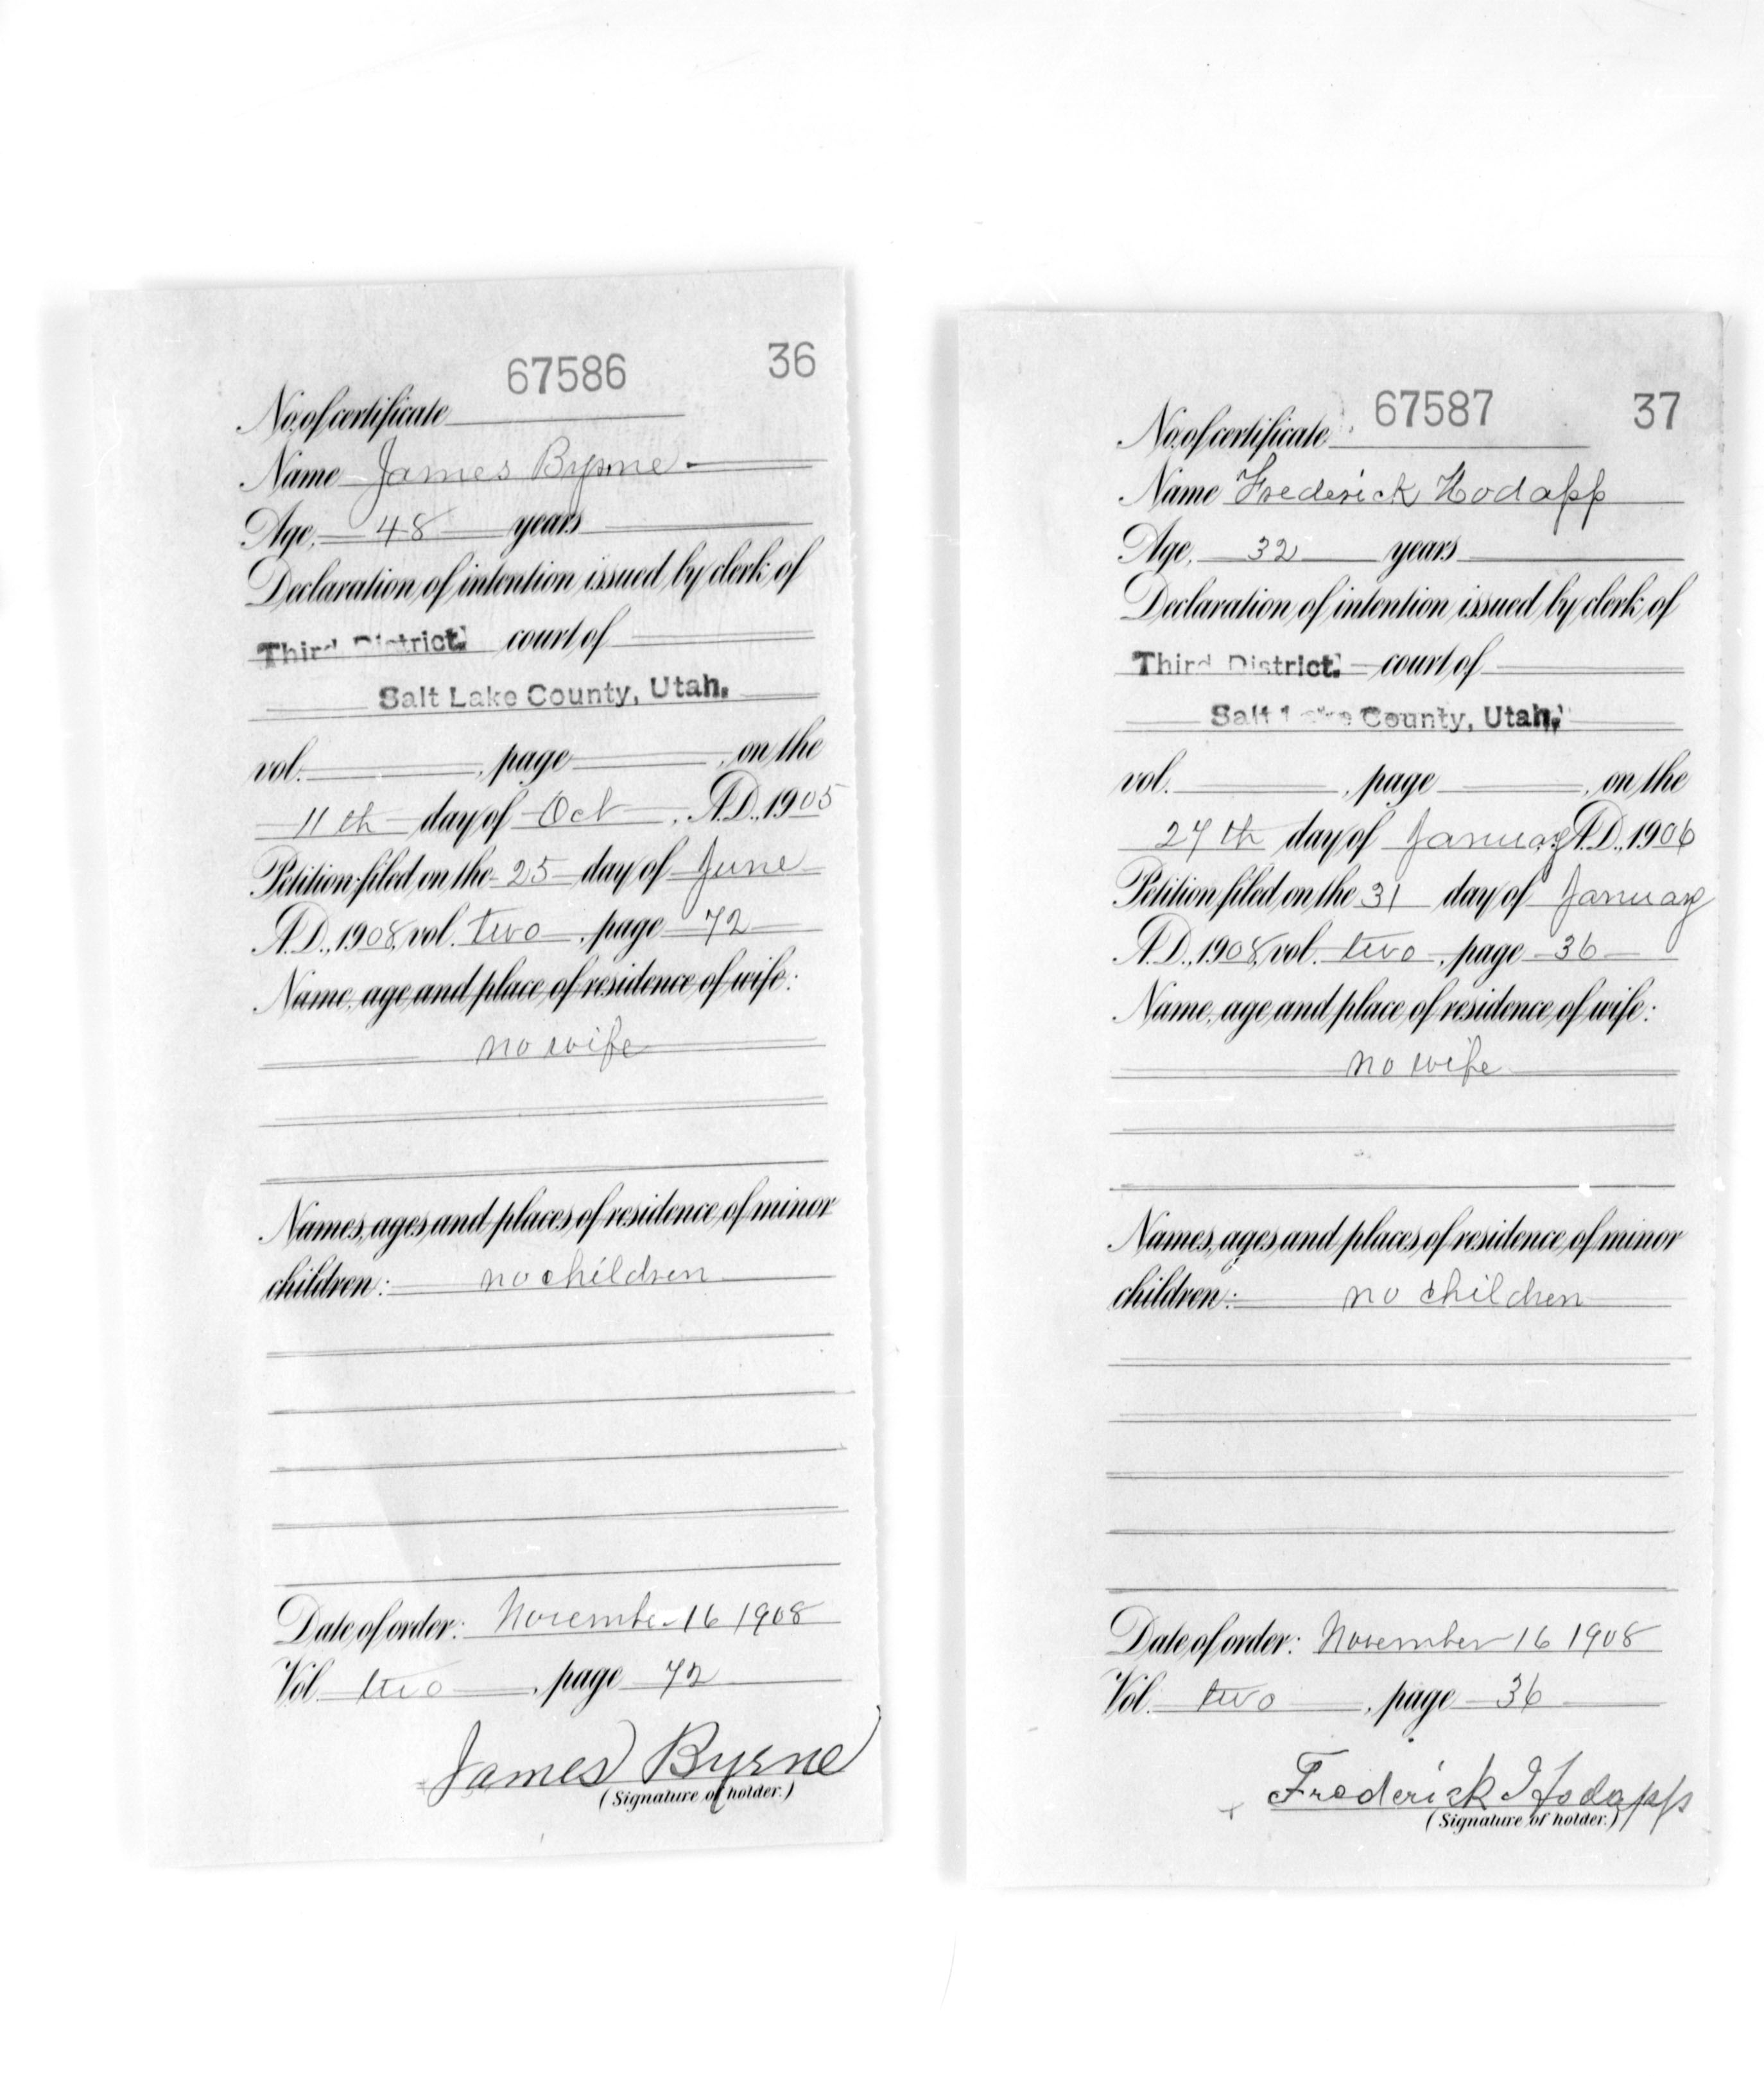 67586 36
No. of certificate
Name James Byrne
Age, 48 years
Declaration of intention issued by clerk of
Third District court of
Salt Lake County, Utah.
vol. , page , on the
11th day of Oct , A.D. 1905
Petition filed on the 25 day of June
A.D. 1908, vol. two , page 72
Name, age and place of residence of wife:
no wife
Names, ages and places of residence of minor
children: no children
Date of order: November 16 1908
Vol. two , page 72
James Byrne
(Signature of holder.)
67587 37
No. of certificate
Name Frederick Hodapp
Age, 32 years
Declaration of intention issued by clerk of
Third District court of
Salt Lake County, Utah.
vol. , page , on the
27th day of January A.D. 1906
Petition filed on the 31 day of January
A.D. 1908, vol. two , page 36
Name, age and place of residence of wife:
no wife
Names, ages and places of residence of minor
children: no children
Date of order: November 16 1908
Vol. two , page 36
Frederick Hodapp
(Signature of holder.)